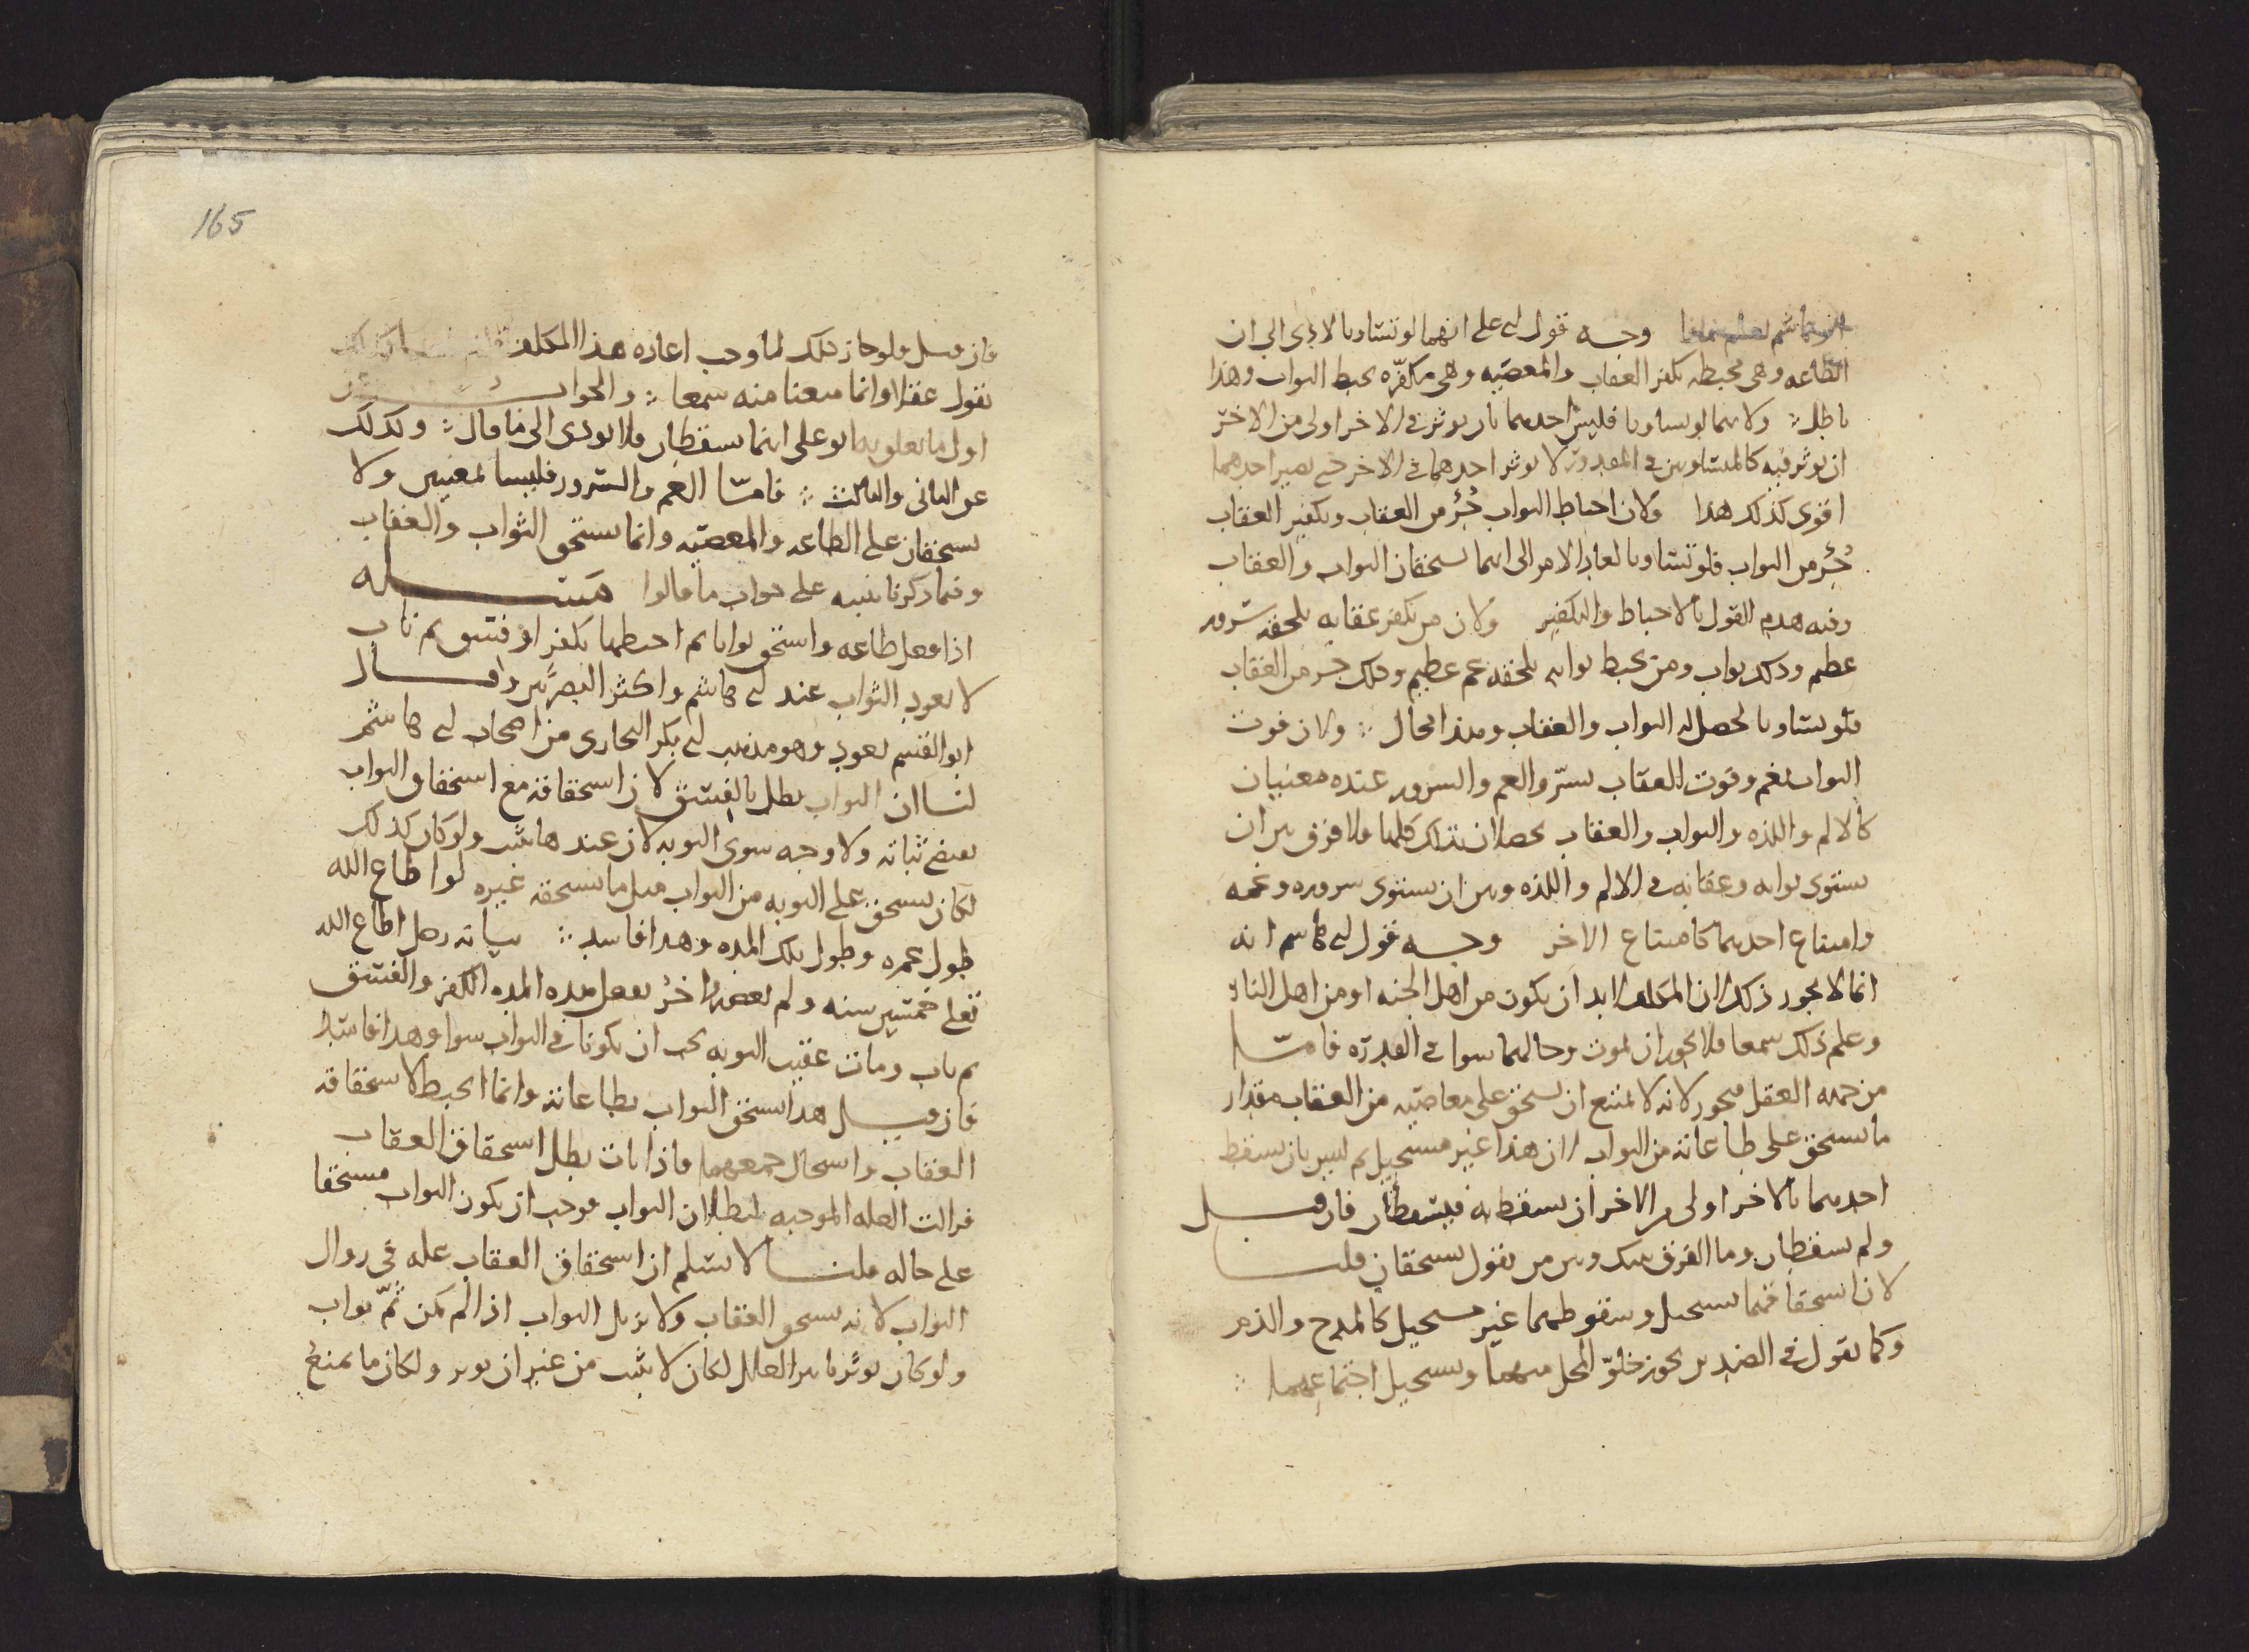 ابو هاشم يعلم سمعا وجه قول ابى على انهما لو تساويا لادى الى ان
الطاعه وهى محبطه تكفر العقاب والمعصيه وهى مكفّره تحبط الثواب وهذا
باطل ولانهما لو تساويا فليس احدهما بان يوثر فى الاخر اولى من الاخر
ان يوثر فيه كالمتساويين فى المقدور لا يوثر احدهما فى الاخر حتى يصير احدهما
اقوى كذلك هذا ولان احباط الثواب جُزء من العقاب وتكفير العقاب
جُزء من الثواب فلو تساويا لعاد الامر الى انهما يستحقان الثواب والعقاب
وفيه هدم القول بالاحباط والتكفير ولان من تكفر عقابه يلحقه سرور
عظيم وذلك ثواب ومن يحبط ثوابه يلحقه غم عظيم وذلك جزء من العقاب
فلو تساويا لحصل له الثواب والعقاب وهذا محال ولان فوت
الثواب يغم وفوت العقاب يسرّ والغم والسرور عنده معنيان
كالالم واللذه والثواب والعقاب يحصلان بتلك كلها فلا فرق بين ان
يستوى ثوابه وعقابه فى الالم واللذه وبين ان يستوى سروره وغمه
وامتناع احدهما كامتناع الاخر وجه قول ابى هاشم انه
انما لا يجوز ذلك لان المكلف لا بد ان يكون من اهل الجنه او من اهل النار
وعلم ذلك سمعا فلا يجوز ان يموت وحالهما سوا فى القدره فامّا
من جهه العقل فيجوز لانه لا يمتنع ان يستحق على معاصيه من العقاب مقدار
ما يستحق على طاعاته من الثواب لان هذا غير مستحيل ثم ليس بان يسقط
احدهما بالاخر اولى من الاخر ان يسقط به فيسقطان فان قيل
ولم يسقطان وما الفرق بينك وبين من يقول يستحقان قلنا
لان استحقاقهما يستحيل وسقوطهما غير مستحيل كالمدح والذم
وكما نقول فى الضدين يجوز خلوّ المحل منهما ويستحيل اجتماعهما
165
فان قيل فلو جاز ذلك لما وجب اعاده هذا المكلف
نقول عقلا وانما منعنا منه سمعا والجواب
اول ما تعلق به ابو على انهما يسقطان فلا يودى الى ما قال وكذلك
عن الثانى والثالث فامّا الغم والسرور فليسا بمعنيين ولا
يستحقان على الطاعه والمعصيه وانما يستحق الثواب والعقاب
وفيما ذكرنا تنبيه على جواب ما قالوا مسئله
اذا فعل طاعه واستحق ثوابا ثم احبطها بكفر او فسق ثم تاب
لا يعود الثواب عند ابى هاشم واكثر البصريين وقال
ابو القسم يعود وهو مذهب ابى بكر البخارى من اصحاب ابى هاشم
لنا ان الثواب بطل بالفسق لان استحقاقه مع استحقاق الثواب
ثباته ولا وجه سوى التوبه لان عندها ولو كان كذلك
لكان يستحق على التوبه من الثواب مثل ما يستحقه غيره لو اطاع الله
طول عمره وطول تلك المده وهذا فاسد بيانه رجل اطاع الله
تعلى خمسين سنه ولم يعصه واخر يفعل هذه المده الكفر والفسق
ثم تاب ومات عقيب التوبه يجب ان يكونا فى الثواب سوا وهذا فاسد
فان قيل هذا يستحق الثواب بطاعاته وانما انحبط لاستحقاقه
العقاب واستحال جمعهما فاذا تاب بطل استحقاق العقاب
فزالت العله الموجبه لبطلان الثواب فوجب ان يكون الثواب مستحقا
على حاله قلنا لا نسلم ان استحقاق العقاب عله فى زوال
الثواب لانه يستحق العقاب ولا يزيل الثواب اذا لم يكن ثمّ ثواب
ولو كان يوثر تاثير العلل لكان لا يثبت من غير ان يوثر ولكان ما يمنع